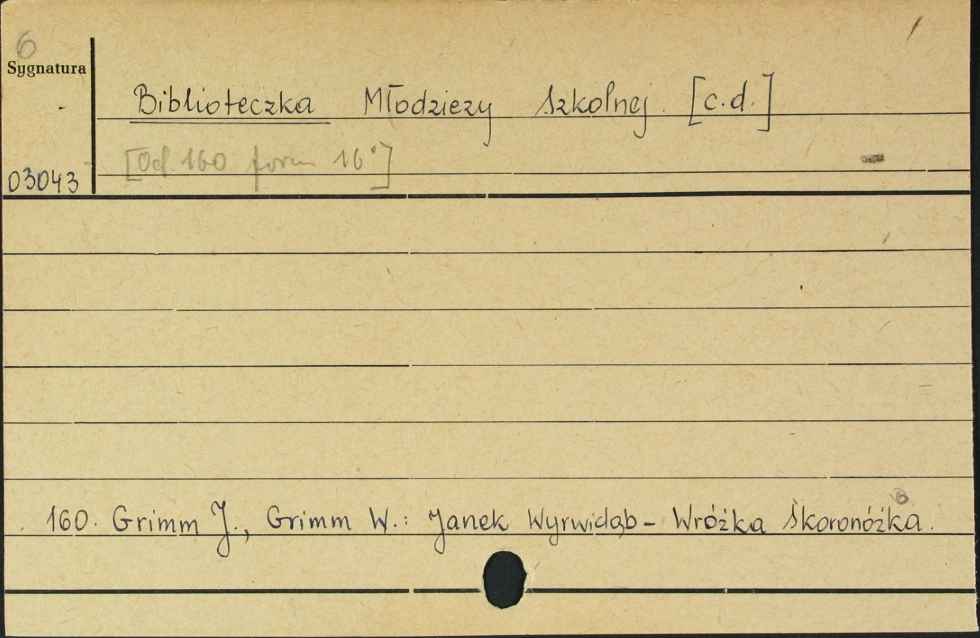 6
Sygnatura
Biblioteczka Młodzieży Szkolnej. [c.d.]
[Od 160 form 16°]
03043
160. Grimm J., Grimm W.: Janek Wyrwidąb - Wróżka Skoronóżka.